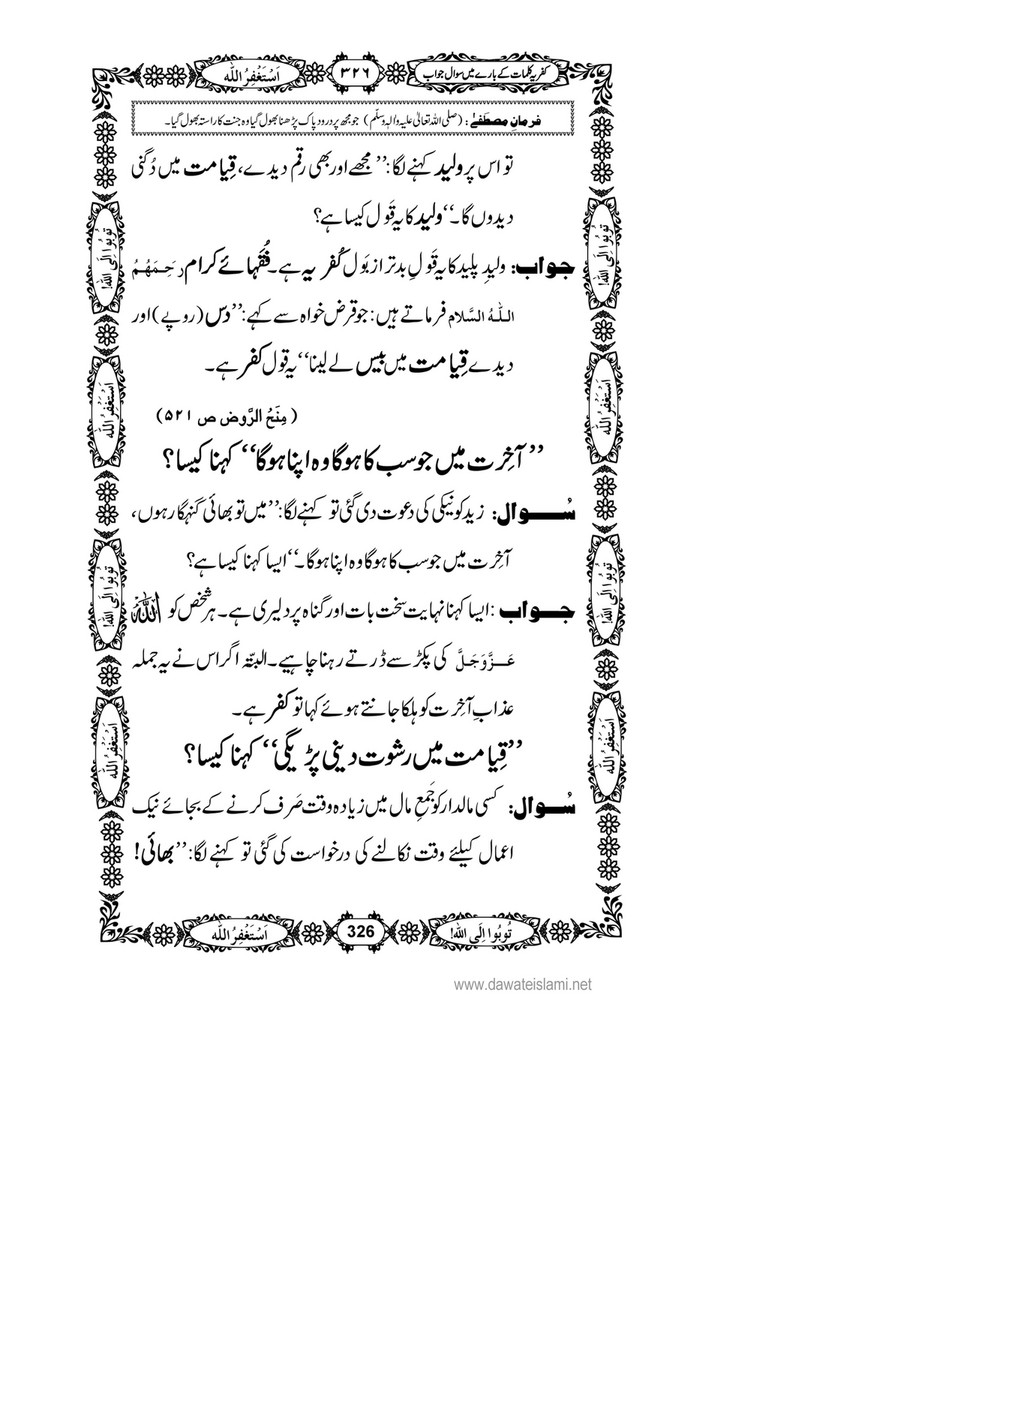 کفریہ کلمات کے بارے میں سوال جواب
۳۲۶
اَسْتَغْفِرُ اللّٰه
فرمانِ مصطَفٰے : (صلی اللہ تعالیٰ علیہ والہٖ وسلّم) جو مجھ پر درود پاک پڑھنا بھول گیا وہ جنت کا راستہ بھول گیا۔
تو اس پر ولید کہنے لگا: ’’مجھے اور بھی رقم دیدے، قِیامت میں دُگنی
دیدوں گا۔‘‘ ولید کا یہ قَول کیسا ہے؟
جواب: ولیدِ پلید کا یہ قَولِ بدتر از بَول کُفریہ ہے۔ فُقَہائے کرام رَحِمَهُمُ
اللّٰہُ السَّلام فرماتے ہیں: جو قرض خواہ سے کہے: ’’دس (روپے) اور
دیدے قِیامت میں بیس لے لینا‘‘ یہ قول کفر ہے۔
(مِنَحُ الرَّوض ص ۵۲۱)
’’آخِرت میں جو سب کا ہوگا وہ اپنا ہوگا‘‘ کہنا کیسا؟
سُوال: زید کو نیکی کی دعوت دی گئی تو کہنے لگا: ’’میں تو بھائی گنہگار ہوں،
آخِرت میں جو سب کا ہوگا وہ اپنا ہوگا۔‘‘ ایسا کہنا کیسا ہے؟
جواب: ایسا کہنا نہایت سخت بات اور گناہ پر دلیری ہے۔ ہر شخص کو اللہ
عَزَّوَجَلَّ کی پکڑ سے ڈرتے رہنا چاہیے۔ البتّہ اگر اس نے یہ جملہ
عذابِ آخِرت کو ہلکا جانتے ہوئے کہا تو کفر ہے۔
’’قِیامت میں رشوت دینی پڑیگی‘‘ کہنا کیسا؟
سُوال: کسی مالدار کو جَمعِ مال میں زیادہ وقت صَرف کرنے کے بجائے نیک
اعمال کیلئے وقت نکالنے کی درخواست کی گئی تو کہنے لگا: ’’بھائی!
تُوبُوا اِلَی اللّٰه!
اَسْتَغْفِرُ اللّٰه
تُوبُوا اِلَی اللّٰه!
اَسْتَغْفِرُ اللّٰه
تُوبُوا اِلَی اللّٰه!
اَسْتَغْفِرُ اللّٰه
تُوبُوا اِلَی اللّٰه!
اَسْتَغْفِرُ اللّٰه
تُوبُوا اِلَی اللّٰه!
326
اَسْتَغْفِرُ اللّٰه
www.dawateislami.net